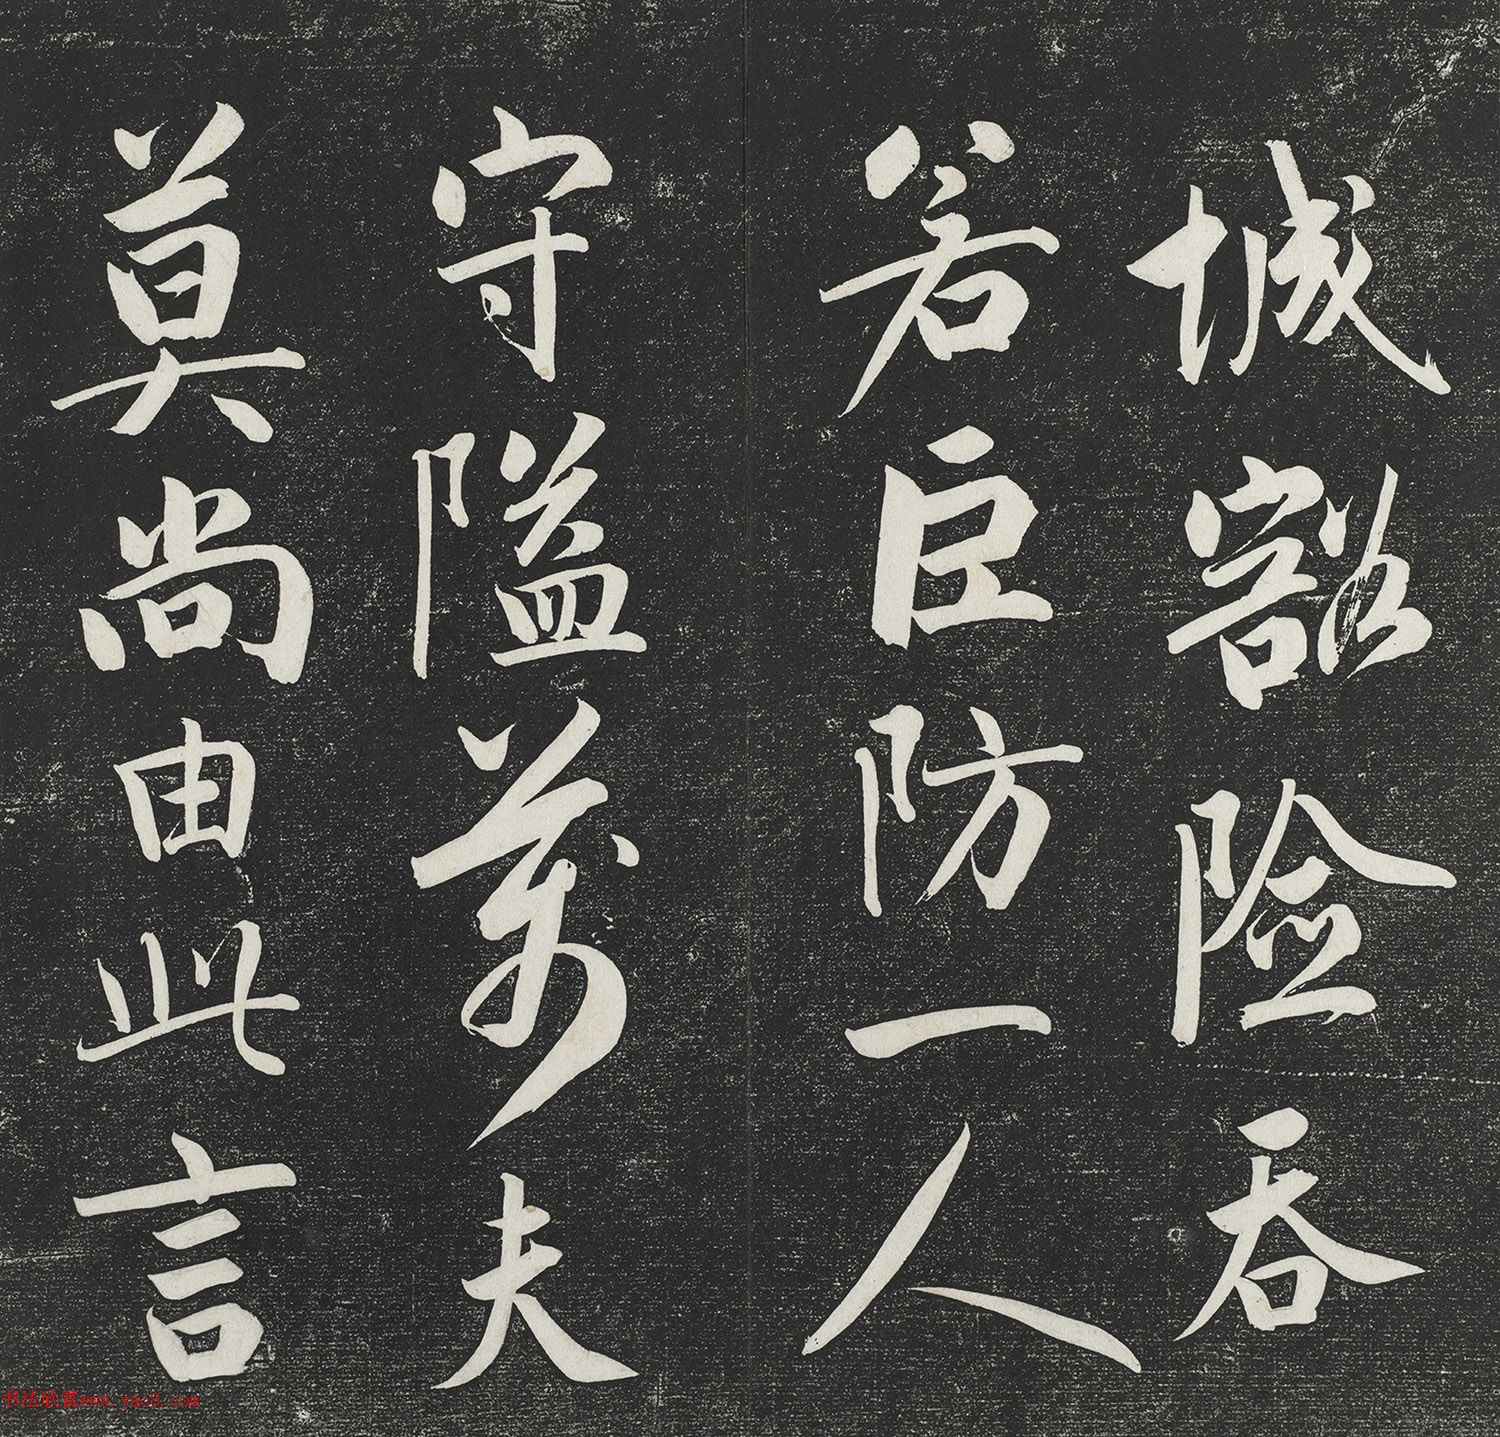 城豁險吞
若巨防一人
守隘萬夫
莫尚由此言
书法欣赏www.yac8.com